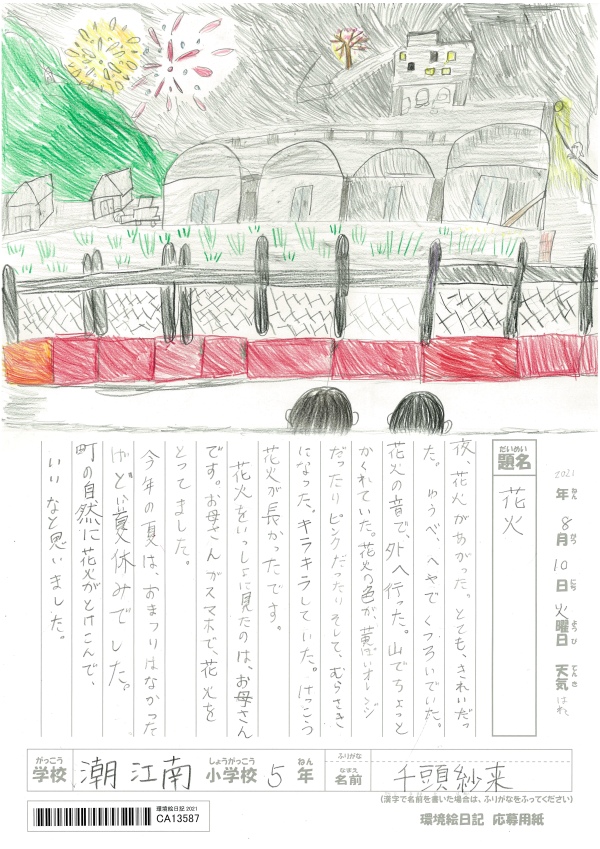 2021年8月10日火曜日 天気はれ
ねん がつ にち ようび てんき
だいめい
題名
花火
夜、花火があがった。とても、きれいだっ
た。ゆうべ、へやでくつろいでいた。
花火の音で、外へ行った。山でちょっと
かくれていた。花火の色が、黄ぽいオレンジ
だったりピンクだったりそして、むらさき
になった。キラキラしていた。けっこう
花火が長かったです。
花火をいっしょに見たのは、お母さん
です。お母さんがスマホで、花火を
とってました。
今年の夏は、おまつりはなかった
けどいい夏休みでした。
町の自然に花火がとけこんで、
いいなと思いました。
がっこう しょうがっこう ねん ふりがな
学校 潮江南 小学校 5年 名前 千頭紗来
なまえ
(漢字で名前を書いた場合は、ふりがなをふってください)
環境絵日記2021
CA13587
環境絵日記 応募用紙